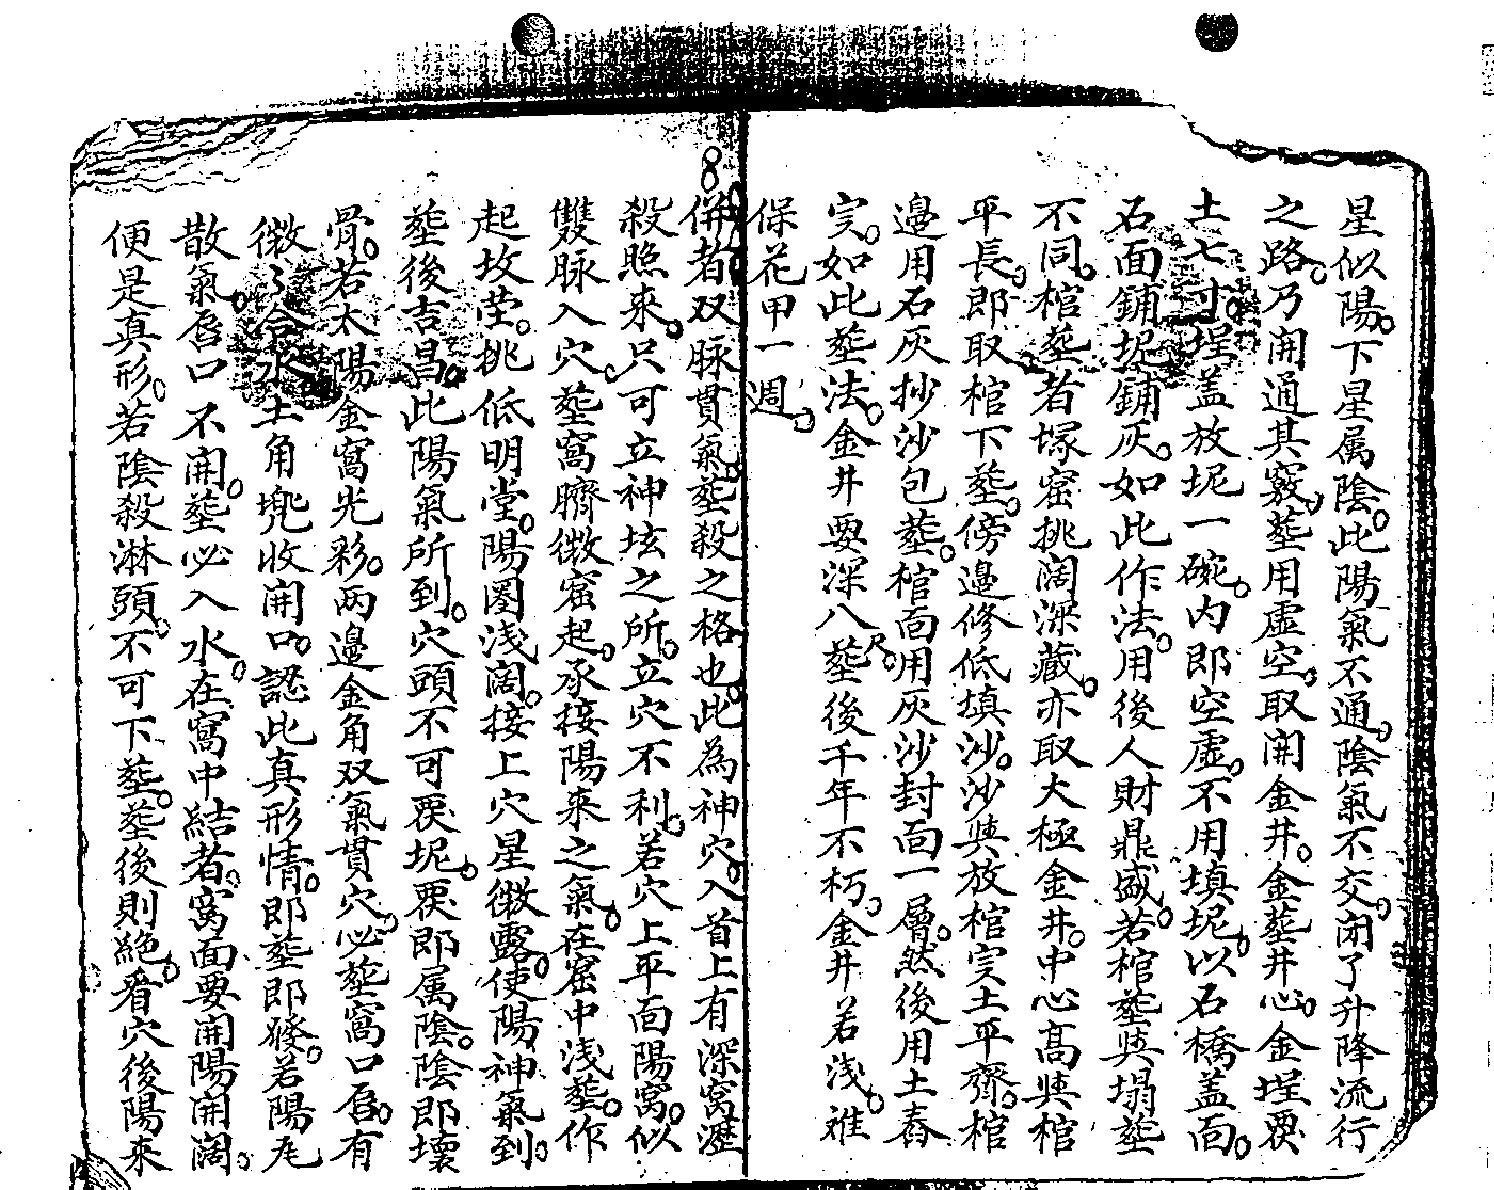 星似陽。下星属陰。此陽氣不通。陰氣不交。闭了升降流行
之路。乃開通其竅。塟用虛空。取開金井。金塟井心。金埕
土七寸。埕盖放坭一碗。内即空虛。不用填坭。以石橋盖面。
石面鋪坭鋪灰。如此作法。用後人財鼎盛。若棺塟與塌塟
不同。棺塟者塚窑挑闊深藏。亦取大極金井。中心高與棺
平長。即取棺下塟。傍邉修低填沙。沙與放棺実土平齊。棺
邉用石灰抄沙包塟。棺面用灰沙封面一層。然後用土舂
実。如此塟法。金井要深八尺。塟後千年不朽。金井若浅。难
保花甲一週。
8
併者双脉貫氣。塟殺之格也。此為神穴。入首上有深窩
殺照来。只可立神坛之所。立穴不利。若穴上平面陽窩。似
雙脉入穴。塟窩臍微窑起。承接陽来之氣。在窑中浅塟。作
起坟茔。挑低明堂。陽圏浅阔。接上穴星微露。使陽神氣到。
塟後吉昌。此陽氣所到。穴頭不可覄坭。覄即属陰。陰即壞
骨。若太陽金窩光彩。两邉金角双氣貫穴。必塟窩口唇。有
微々合水土角兜收開口。認此真形情。即塟即發。若陽
散氣。唇口不開。塟必入水。在窩中結者。窝面要開陽開阔。
便是真形。若陰殺淋頭。不可下塟。塟後則絕。看穴後陽来